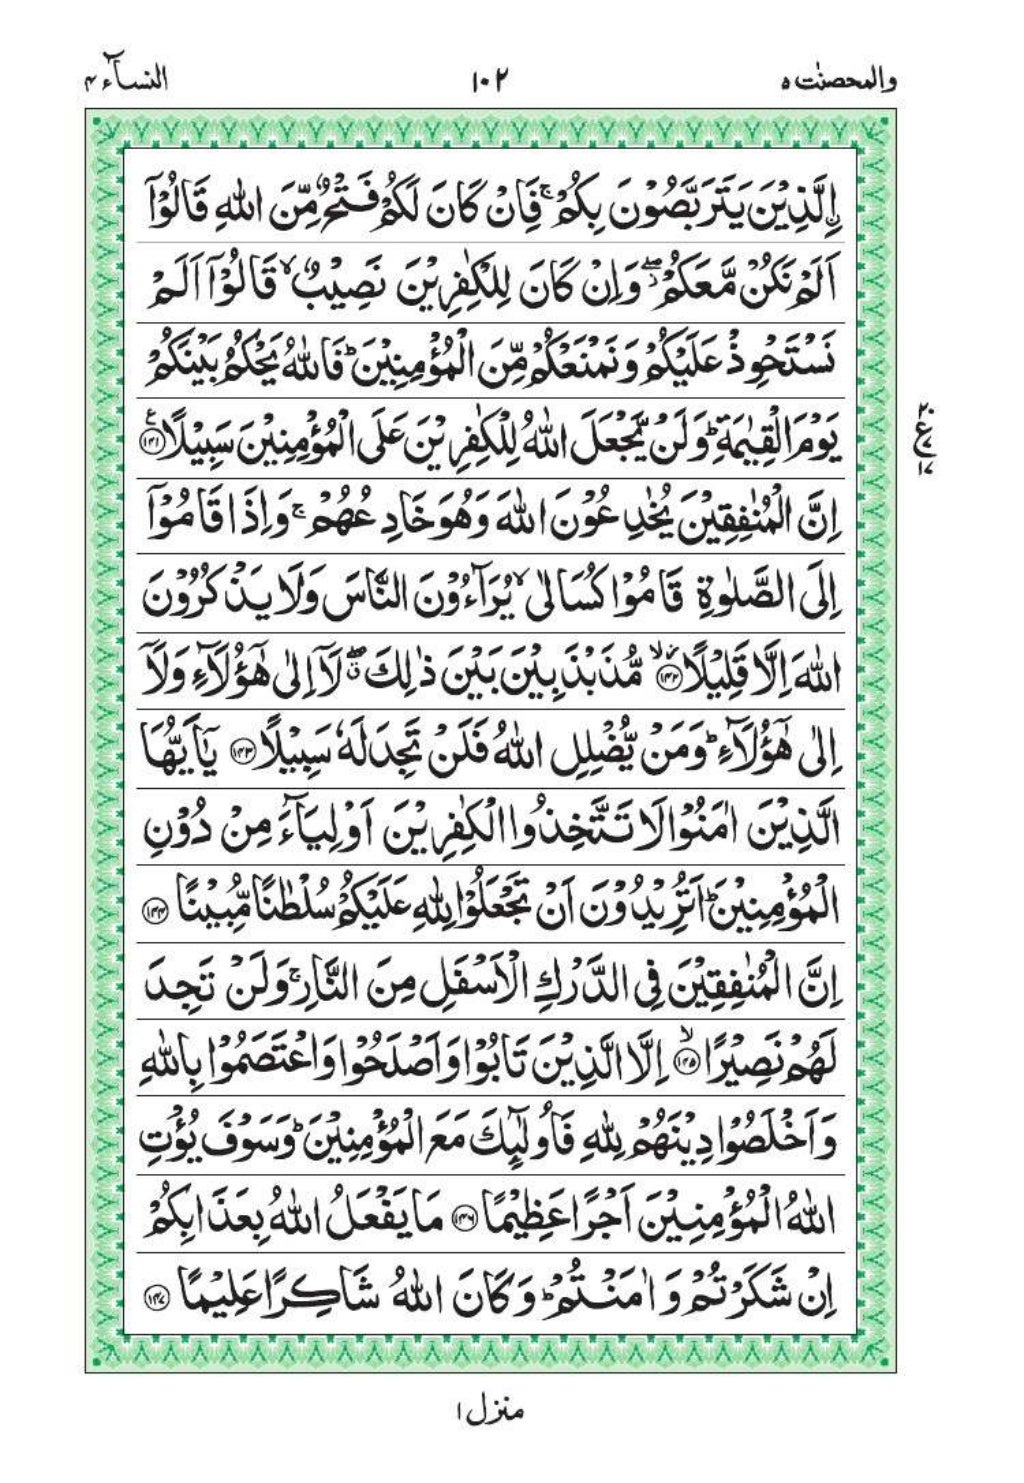 والمحصنٰت ٥
١٠٢
النسآء ٤
اِۨلَّذِيْنَ يَتَرَبَّصُوْنَ بِكُمْ ۚ فَاِنْ كَانَ لَكُمْ فَتْحٌ مِّنَ اللّٰهِ قَالُوْۤا
اَلَمْ نَكُنْ مَّعَكُمْ ۖ٘ وَاِنْ كَانَ لِلْكٰفِرِيْنَ نَصِيْبٌ ۙ قَالُوْۤا اَلَمْ
نَسْتَحْوِذْ عَلَيْكُمْ وَنَمْنَعْكُمْ مِّنَ الْمُؤْمِنِيْنَ ؕ فَاللّٰهُ يَحْكُمُ بَيْنَكُمْ
يَوْمَ الْقِيٰمَةِ ؕ وَلَنْ يَّجْعَلَ اللّٰهُ لِلْكٰفِرِيْنَ عَلَى الْمُؤْمِنِيْنَ سَبِيْلًا ۧ ﴿١٤١﴾
اِنَّ الْمُنٰفِقِيْنَ يُخٰدِعُوْنَ اللّٰهَ وَهُوَ خَادِعُهُمْ ۚ وَاِذَا قَامُوْۤا
اِلَى الصَّلٰوةِ قَامُوْا كُسَالٰى ۙ يُرَآءُوْنَ النَّاسَ وَلَا يَذْكُرُوْنَ
اللّٰهَ اِلَّا قَلِيْلًا ۙ ﴿١٤٢﴾ مُّذَبْذَبِيْنَ بَيْنَ ذٰلِكَ ۖ لَاۤ اِلٰى هٰۤؤُلَآءِ وَلَاۤ
اِلٰى هٰۤؤُلَآءِ ؕ وَمَنْ يُّضْلِلِ اللّٰهُ فَلَنْ تَجِدَ لَهٗ سَبِيْلًا ﴿١٤٣﴾ يٰۤاَيُّهَا
الَّذِيْنَ اٰمَنُوْا لَا تَتَّخِذُوا الْكٰفِرِيْنَ اَوْلِيَآءَ مِنْ دُوْنِ
الْمُؤْمِنِيْنَ ؕ اَتُرِيْدُوْنَ اَنْ تَجْعَلُوْا لِلّٰهِ عَلَيْكُمْ سُلْطٰنًا مُّبِيْنًا ﴿١٤٤﴾
اِنَّ الْمُنٰفِقِيْنَ فِى الدَّرْكِ الْاَسْفَلِ مِنَ النَّارِ ۚ وَلَنْ تَجِدَ
لَهُمْ نَصِيْرًا ۙ ﴿١٤٥﴾ اِلَّا الَّذِيْنَ تَابُوْا وَاَصْلَحُوْا وَاعْتَصَمُوْا بِاللّٰهِ
وَاَخْلَصُوْا دِيْنَهُمْ لِلّٰهِ فَاُولٰٓئِكَ مَعَ الْمُؤْمِنِيْنَ ؕ وَسَوْفَ يُؤْتِ
اللّٰهُ الْمُؤْمِنِيْنَ اَجْرًا عَظِيْمًا ﴿١٤٦﴾ مَا يَفْعَلُ اللّٰهُ بِعَذَابِكُمْ
اِنْ شَكَرْتُمْ وَاٰمَنْتُمْ ؕ وَكَانَ اللّٰهُ شَاكِرًا عَلِيْمًا ﴿١٤٧﴾
منزل ١